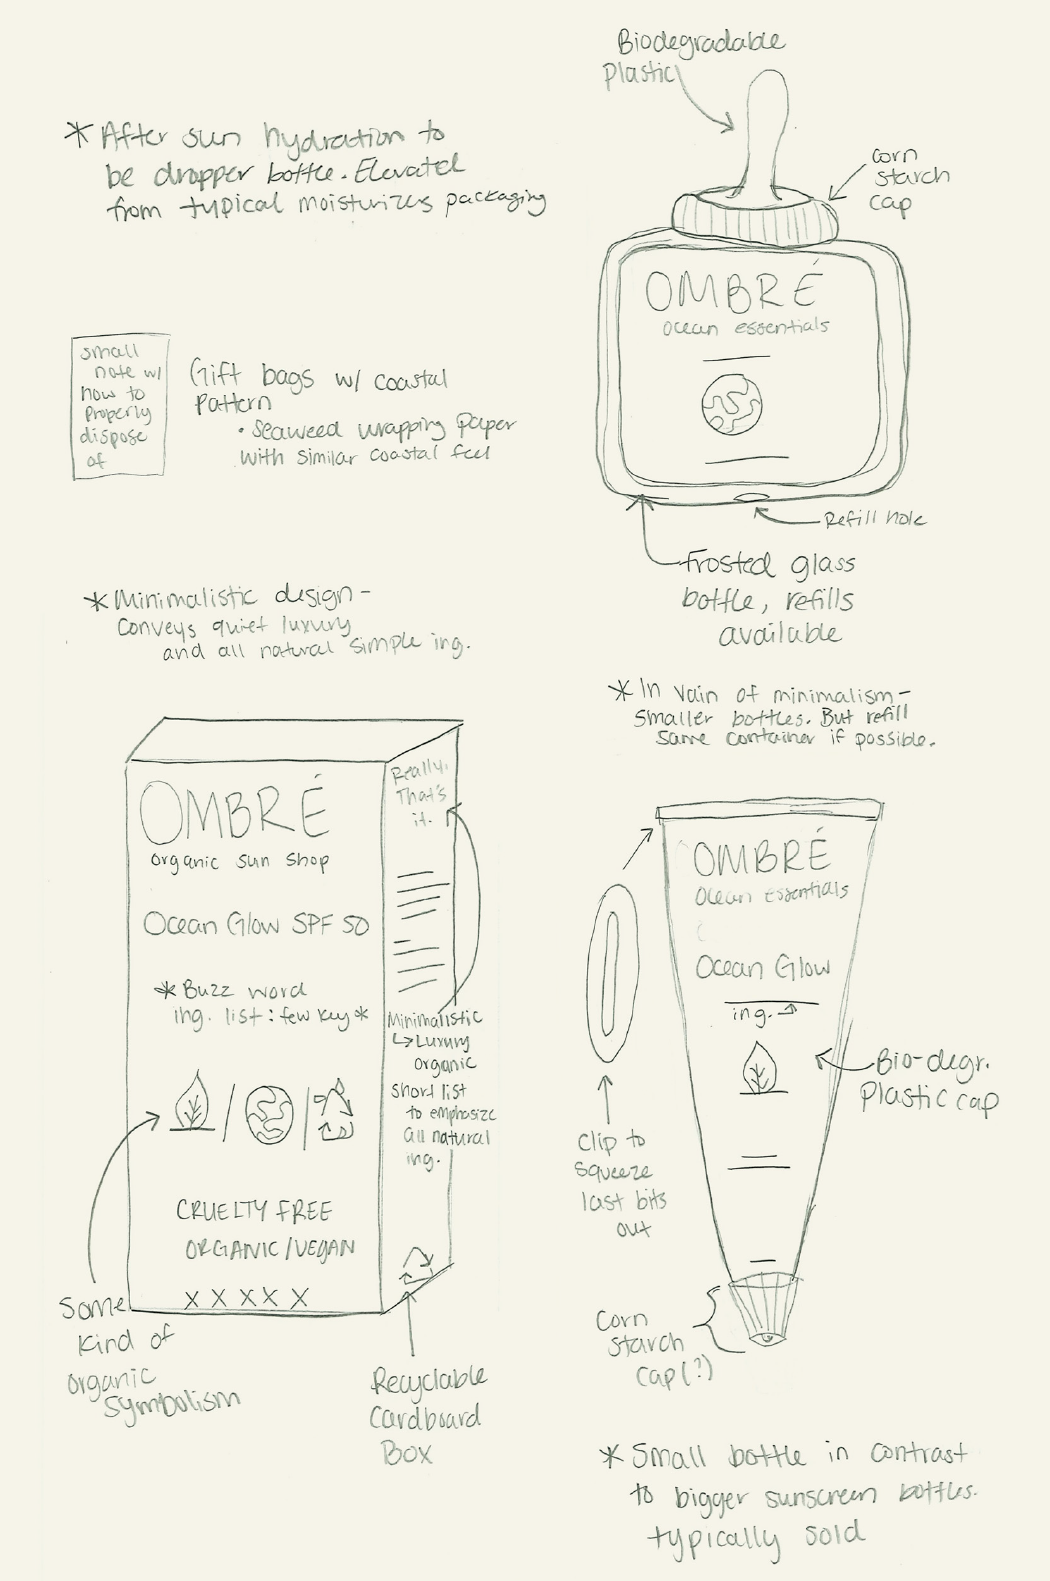 Biodegradable
Plastic
* After sun hydration to
be dropper bottle. Elevated
from typical moisturizers packaging
corn
starch
cap
OMBRÉ
ocean essentials
small
note w/
how to
Properly
dispose
of
Gift bags w/ coastal
Pattern
• Seaweed wrapping paper
with similar coastal feel
Refill hole
Frosted glass
bottle, refills
available
* Minimalistic design -
Conveys quiet luxury
and all natural simple ing.
* In vain of minimalism -
smaller bottles. But refill
same container if possible.
OMBRÉ
organic sun shop
Ocean Glow SPF 50
* Buzz word
ing. list: few key *
CRUELTY FREE
ORGANIC/VEGAN
X X X X X
Really.
That's
it.
Minimalistic
↳ Luxury
organic
short list
to emphasize
all natural
ing.
Some
kind of
organic
symbolism
Recyclable
Cardboard
Box
OMBRÉ
Ocean essentials
Ocean Glow
ing.
Bio-degr.
Plastic cap
Clip to
squeeze
last bits
out
Corn
starch
cap(?)
* Small bottle in contrast
to bigger sunscreen bottles.
typically sold